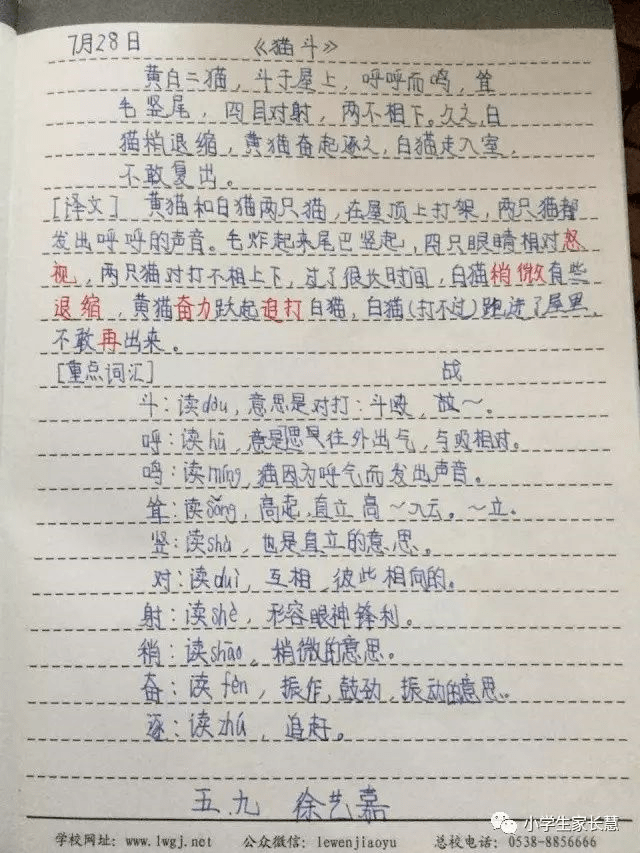 7月28日 《猫斗》
黄白二猫，斗于屋上，呼呼而鸣，耸
毛竖尾，四目对射，两不相下。久之，白
猫稍退缩，黄猫奋起逐之，白猫走入室，
不敢复出。
[译文] 黄猫和白猫两只猫，在屋顶上打架，两只猫都
发出呼呼的声音。毛炸起来尾巴竖起，四只眼睛相对怒
视，两只猫对打不相上下，过了很长时间，白猫稍微有些
退缩，黄猫奋力跃起追打白猫，白猫(打不过)跑进了屋里，
不敢再出来。
[重点词汇] 战
斗：读dòu，意思是对打：斗殴，故～。
呼：读hū，意思是往外出气，与吸相对。
鸣：读míng，猫因为呼气而发出声音。
耸：读sǒng，高起，直立 高～入云。～立.
竖：读shù，也是直立的意思。
对：读duì，互相，彼此相向的。
射：读shè，形容眼神锋利。
稍：读shāo，稍微的意思。
奋：读fèn，振作，鼓劲，振动的意思。
逐：读zhú，追赶。
五.九 徐艺嘉
小学生家长慧
学校网址：www.lwgj.net 公众微信：lewenjiaoyu 总校电话：0538-8856666